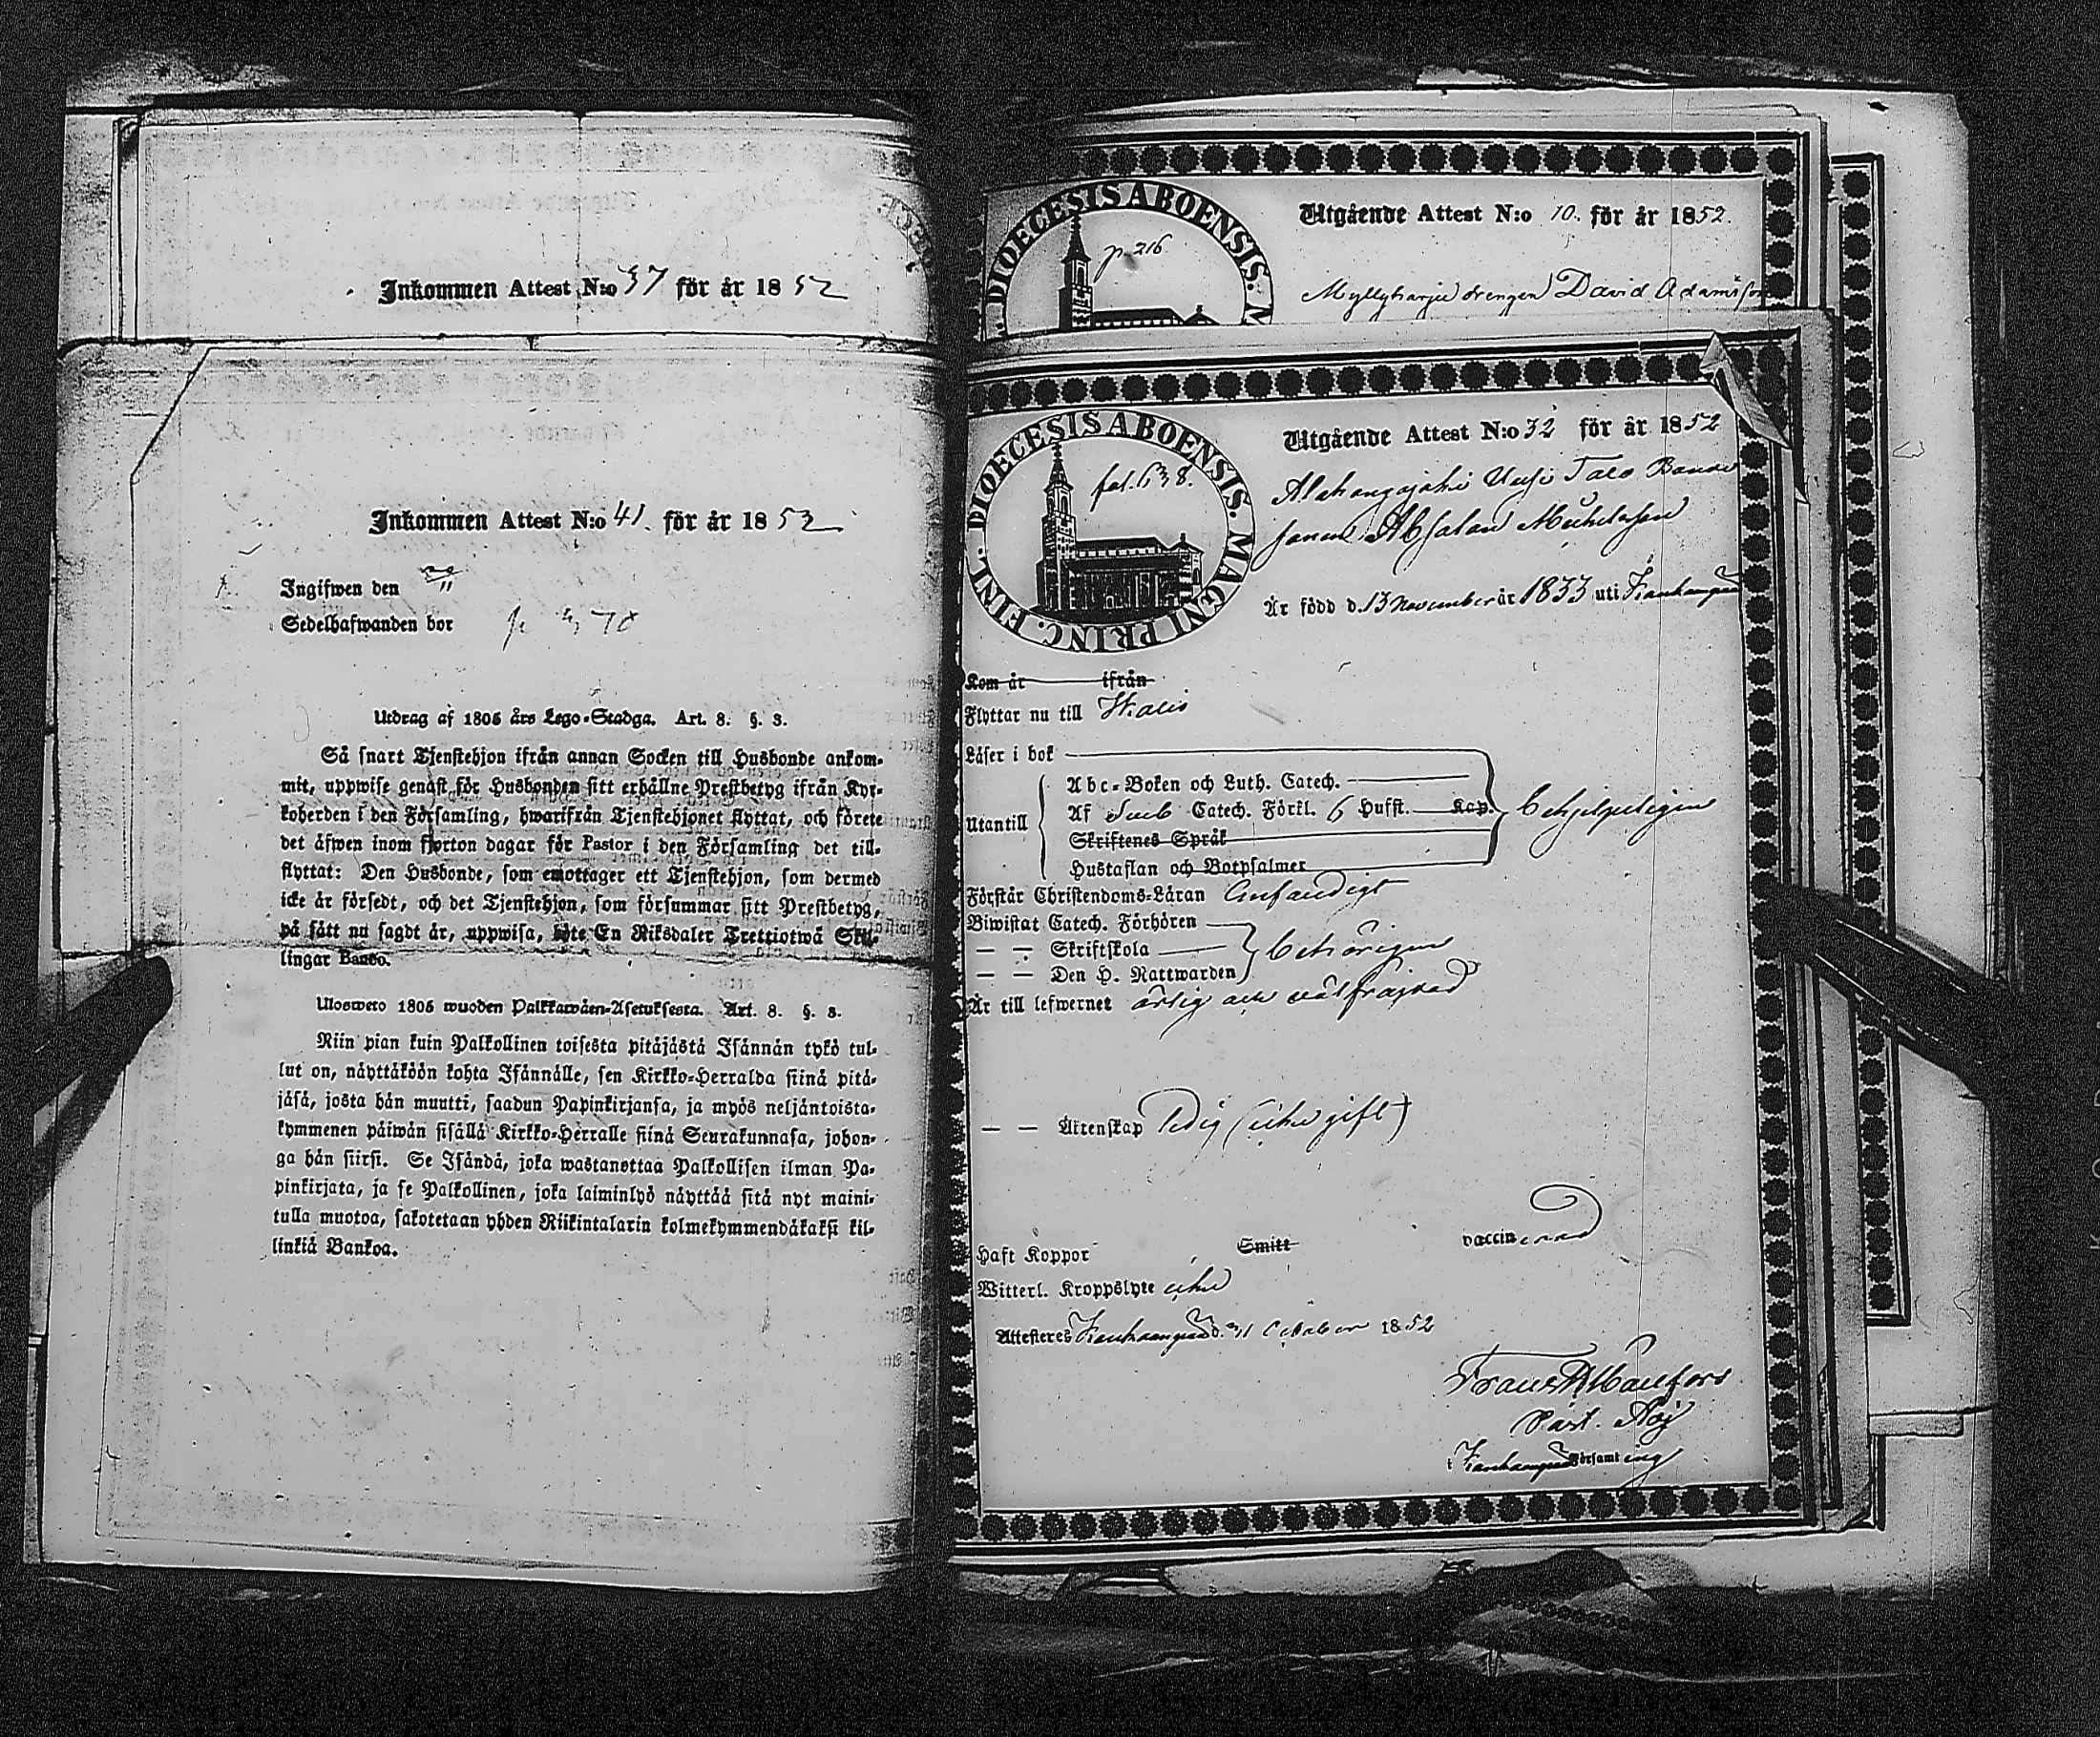 Inkommen Attest N:o 37 för år 1852
Inkommen Attest N:o 41. för år 1852
Ingifwen den
Sedelhafwanden bor
Utdrag af 1805 års Lego-Stadga. Art. 8. §. 3.
Så snart Tjenstehjon ifrån annan Socken till Husbonde ankom-
mit, uppwise genast för Husbonden sitt erhållne Prestbetyg ifrån Kyr-
koherden i den Församling, hwarifrån Tjenstehjonet flyttat, och förete
det äfwen inom fjorton dagar för Pastor i den Församling det till-
flyttat: Den Husbonde, som emottager ett Tjenstehjon, som dermed
icke är försedt, och det Tjenstehjon, som försummar sitt Prestbetyg,
på sätt nu sagdt är, uppwisa, böte En Riksdaler Trettiotwå Skil-
lingar Banco.
Ulosweto 1805 wuoden Palkkawäen-Asetuksesta. Art. 8. §. 3.
Niin pian kuin Palkollinen toisesta pitäjästä Isännän tykö tul-
lut on, näyttäköön kohta Isännälle, sen Kirkko-Herralda siinä pitä-
jäsä, josta hän muutti, saadun Papinkirjansa, ja myös neljäntoista-
kymmenen päiwän sisällä Kirkko-Herralle siinä Seurakunnasa, johon-
ga hän siirsi. Se Isändä, joka wastanottaa Palkollisen ilman Pa-
pinkirjata, ja se Palkollinen, joka laiminlyö näyttää sitä nyt maini-
tulla muotoa, sakotetaan yhden Riikintalarin kolmekymmendäkaksi kil-
linkiä Bankoa.
DIOECESIS ABOENSIS. M
p. 216
Utgående Attest N:o 10. för år 1852.
Myllyharju drengen David Adamsson
DIOECESIS ABOENSIS. MAGNI PRINC. FINL.
fol. 638.
Utgående Attest N:o 32 för år 1852
Alahongajoki Uusi Talo Bonde
sonen Absalon Michelsson
Är född d. 13 November år 1833 uti Kankaanpää
Kom år ifrån
Flyttar nu till Ikalis
Läser i bok
Utantill
Abc-Boken och Luth. Catech.
Af Sveb Catech. Förkl. 6 Hufst. Kap.
Skriftenes Språk
Hustaflan och Botpsalmer
behjelpeligen
Förstår Christendoms-Läran enfaldigt
Biwistat Catech. Förhören
— — Skriftskola
— — Den H. Nattwarden
behörigen
Är till lefwernet ärlig och välfräjdad
— — Äktenskap ledig (icke gift)
Haft Koppor Smitt vaccinerad
Witterl. Kroppslyte icke
Attesteres Kankaanpää d. 31 October 1852
Past. Adj
i Kankaanpää Församling